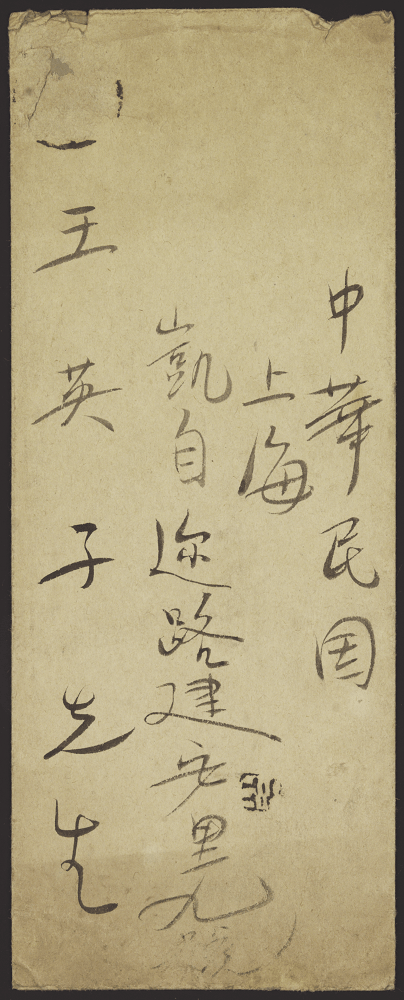 中華民国
上海
凱自迩路建安里九號
王英子先生